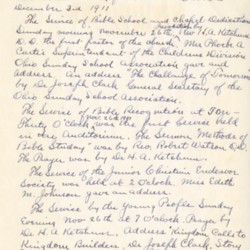 December 3rd 1911
The Series of Bible School and Chapel Dedication
Sunday morning November 26th Rev H.A. Ketchum
D.D. the first pastor of the church. Mrs Phoebe A
Curtis Superintendent of the Childrens Division
Ohio Sunday School Association gave and
address. An address "The Challenge of Tomorrow
by Dr Joseph Clark General Secretary of the
Ohio Sunday School Association.
The Series of Bible Recognition at 3 Oc-
Plenty O'Clock was the Service held
in the Auditorium. The Sermon Methods of
Bible Study" was by Rev. Robert Watson D.D.
The Prayer was by Dr H.A. Ketchum.
The Series of the Junior Christian Endeavor
Society was held at 2 O'clock. Miss Edith
M. Johnson gave an address.
The Service by the Young Peoples Sunday
evening Nov 26th at 7 O'clock. Prayer by
Dr H. A Ketchum. Address Kingdom Calls to
Kingdom Builders. Dr Joseph Clark, State